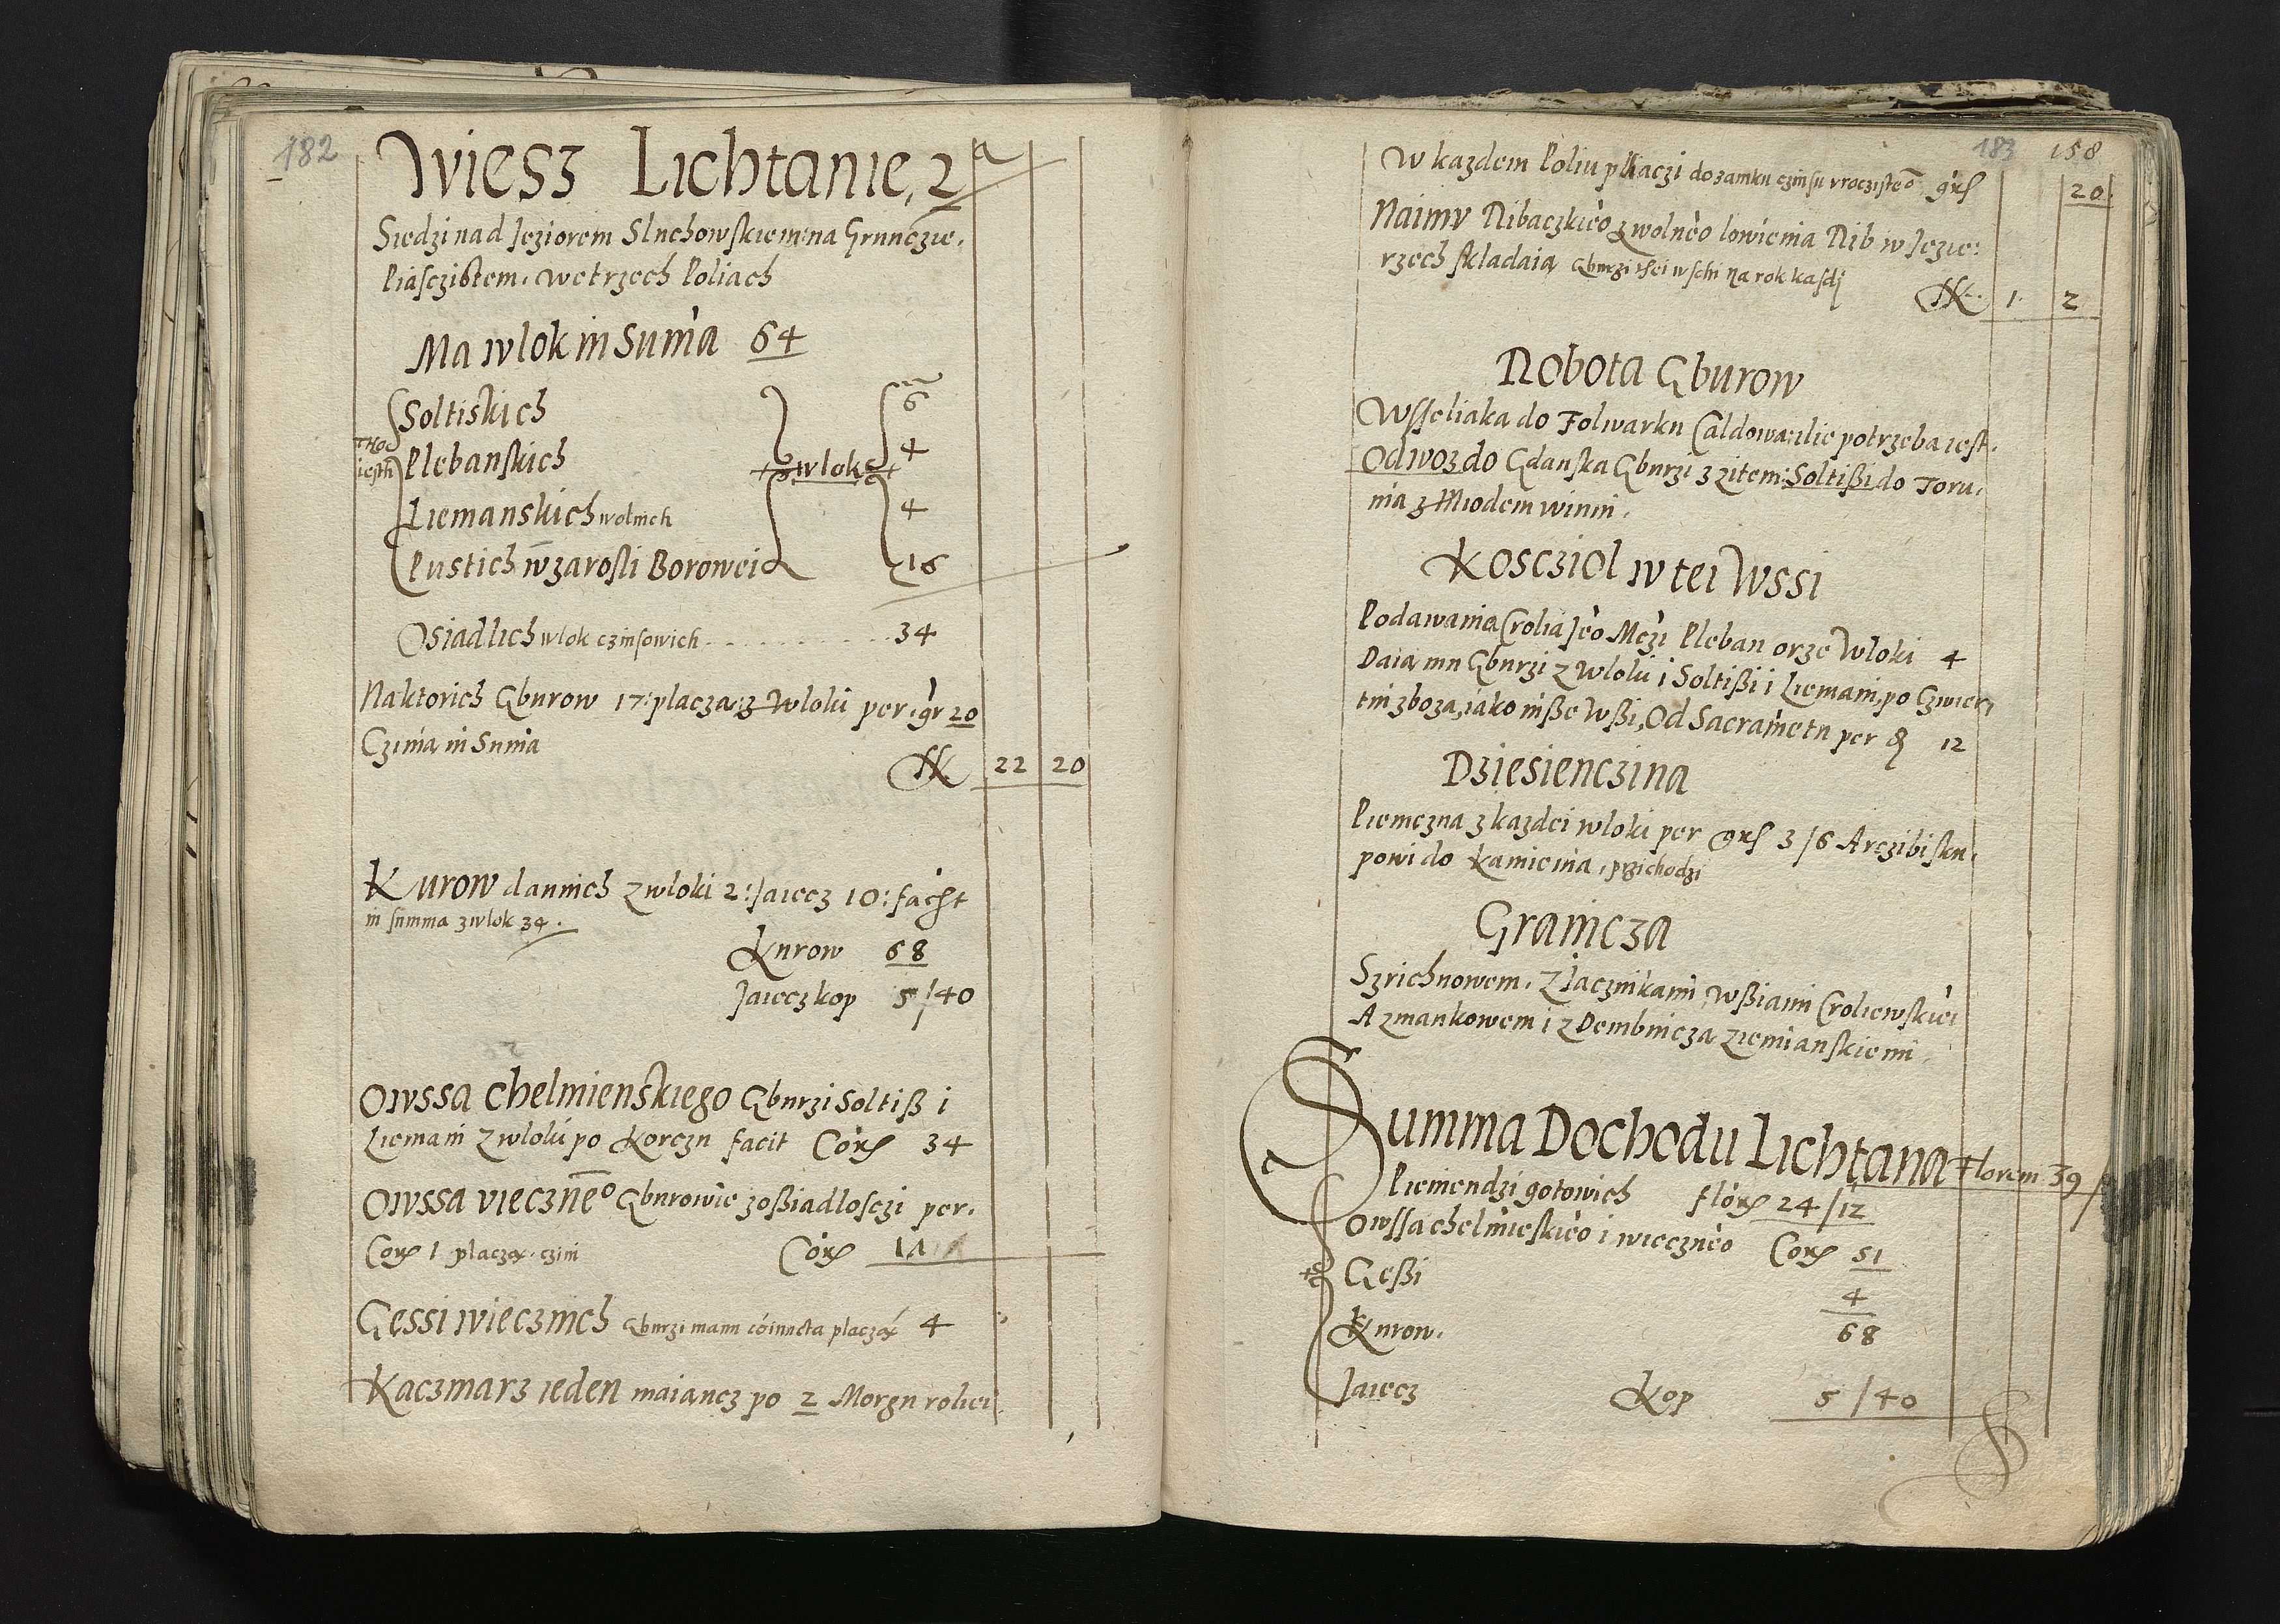 182
Wiesz Lichtanie, 2a
Siedzi nad Jeziorem Sluchowskiem: na Gruncżie,
Piasczistem, we trzech Poliach
Ma wlok in Suma 64
Soltiskich 6
Thoc iesth
Plebanskich 4
wlok
Liemanskich wolnich 4
Pustich w zarosli Borowei 16
Osiadlich wlok czinsowich . . . . . . . 34
Na ktorich Gburow 17: placza: z Wloki per: gr 20
Czinia in Suma 22 20
Kurow dannich z wloki 2: Jaiecz 10: facit
in summa z wlok 34.
Kurow 68
Jaiecz kop 5/40
Owssa Chelmienskiego Gburzi Soltiß i
Liemani z wloki po Korczu facit Cor 34
Owssa vieczneo Gburowie z oßiadlosczi per.
Cor 1 placza czini Cor
Gęssi wiecznich Gburzi manu coiuncta placzą 4
Kaczmarz ieden maiancz po 2 Morgu roliei
183 158
W kazdem Poliu placzi do zamku czinsu vroczisteo grs 20
Naimu Ribaczkieo z wolneo lowienia Rib w Jezie:
rzech skladaia Gburzi thei wsi na rok kasdi
1 2
Robota Gburow
Wsseliaka do Folwarku Caldowa: ilie potrzeba iest.
Odwoz do Gdanska Gburzi z zitem: Soltißi do Toru,
nia z Miodem winni.
Kosciol w tei Wssi
Podawania Crolia Jeo Mczi Pleban orze Wloki 4
Daia mu Gburzi z Wloki i Soltißi i Liemani, po Czwier,
tni zboza, iako insze Wßi, Od Sacrametu per 12
Dziesienczina
Piemczna z kazdei wloki per grs 3/6 Arczibisku,
powi do Kamienia, przichodzi
Granicza
Szrichnowem, Z Jacznikami, Wßiami Croliewskiei
A z mankowem i z Dembnicza Ziemianskiemi.
Summa Dochodu Lichtana Florem 39
Piemendzi gotowich flor 24/12
Owssa chelmieskieo i wieczneo Cor 51
Gęßi 4
Kurow. 68
Jaiecz Kop 5/40